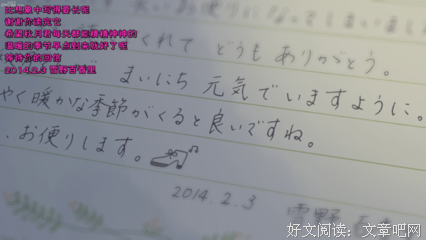 比想象中写得要长呢
谢谢你读完它
希望秋月君每天都能精精神神的
温暖的季节早点到来就好了呢
等待你的回信
2014.2.3 雪野百香里
お便りになってしまいま
くれて どうもありがとう。
まいにち 元気でいますように。
やく暖かな季節がくると良いですね。
、お便りします。
2014.2.3
雪野
好文阅读：文章吧网